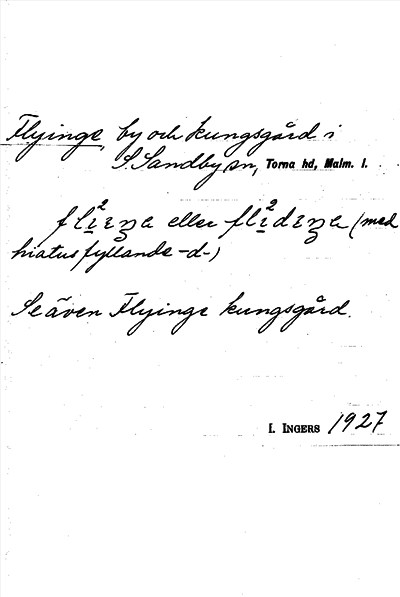 Flyinge, by och kungsgård i
S. Sandby sn, Torna hd, Malm. l.
eller (med
hiatusfyllande -d-)
Se även Flyinge kungsgård.
I. INGERS 1927